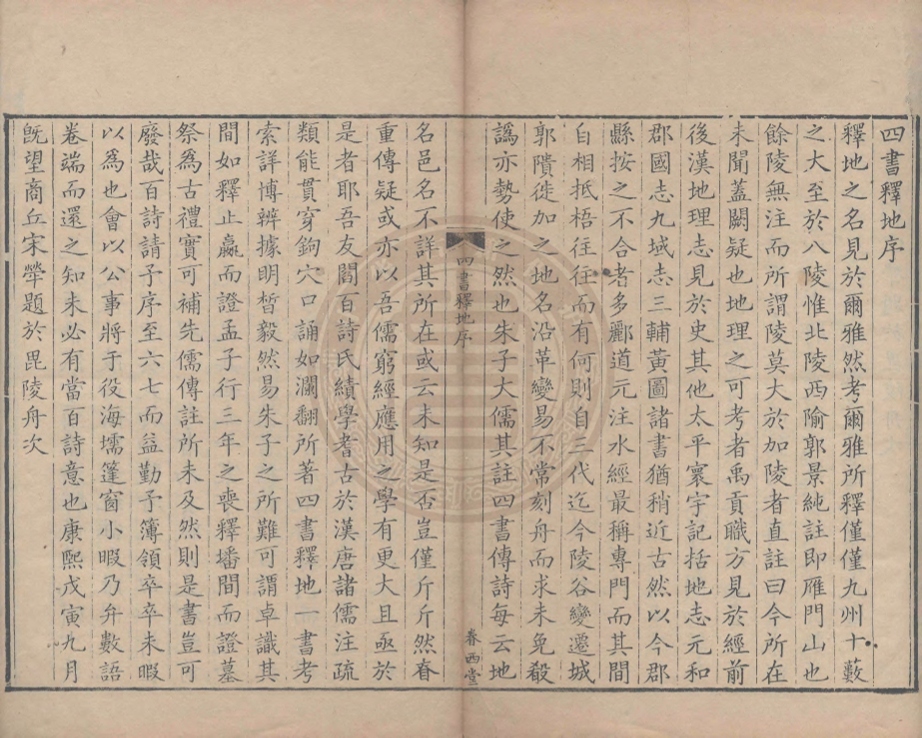 四書釋地序
釋地之名見於爾雅然考爾雅所釋僅僅九州十藪
之大至於八陵惟北陵西隃郭景純註即雁門山也
餘陵無注而所謂陵莫大於加陵者直註曰今所在
未聞蓋闕疑也地理之可考者禹貢職方見於經前
後漢地理志見於史其他太平寰宇記括地志元和
郡國志九域志三輔黃圖諸書猶稍近古然以今郡
縣按之不合者多酈道元注水經最稱專門而其間
自相抵梧往往而有何則自三代迄今陵谷變遷城
郭隤徙加之地名沿革變易不常刻舟而求未免殽
譌亦勢使之然也朱子大儒其註四書傳詩每云地
四書釋地序
眷西堂
名邑名不詳其所在或云未知是否豈僅斤斤然春
重傳疑或亦以吾儒窮經應用之學有更大且亟於
是者耶吾友閻百詩氏績學耆古於漢唐諸儒注疏
類能貫穿鉤穴口誦如瀾翻所著四書釋地一書考
索詳博辨據明晳毅然易朱子之所難可謂卓識其
間如釋止嬴而證孟子行三年之喪釋墦間而證墓
祭為古禮實可補先儒傳註所未及然則是書豈可
廢哉百詩請予序至六七而益勤予簿領卒卒未暇
以為也會以公事將于役海壖篷窗小暇乃弁數語
卷端而還之知未必有當百詩意也康熙戊寅九月
旣望商丘宋犖題於毘陵舟次